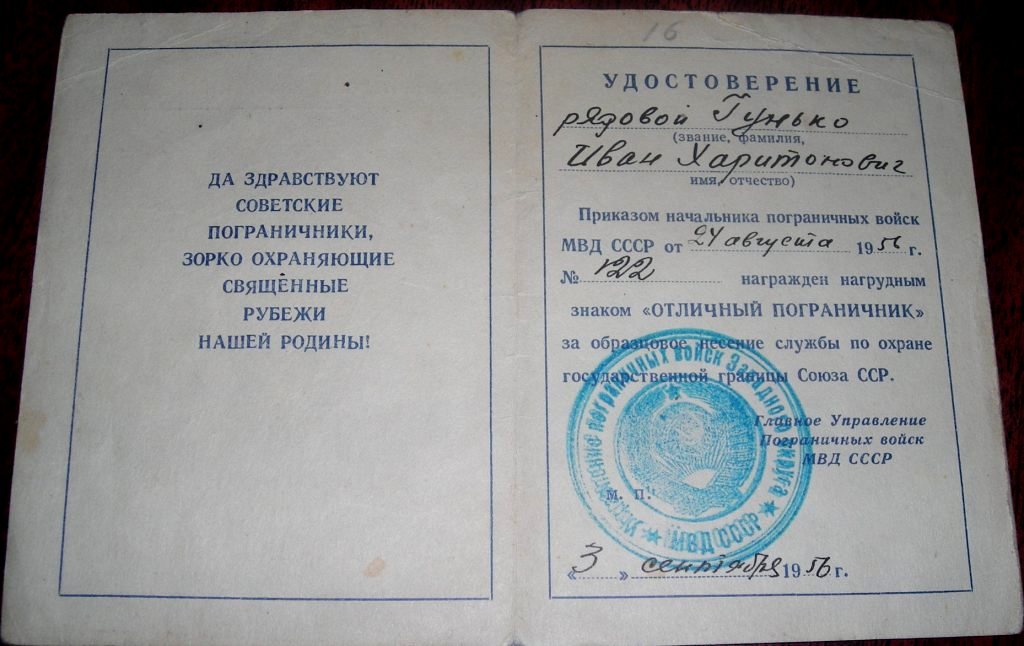 ДА ЗДРАВСТВУЮТ
СОВЕТСКИЕ
ПОГРАНИЧНИКИ,
ЗОРКО ОХРАНЯЮЩИЕ
СВЯЩЕННЫЕ
РУБЕЖИ
НАШЕЙ РОДИНЫ!
16
УДОСТОВЕРЕНИЕ
рядовой Гунько
(звание, фамилия,
Иван Харитонович
имя, отчество)
Приказом начальника пограничных войск
МВД СССР от 24 августа 1956 г.
№ 122 награжден нагрудным
знаком «ОТЛИЧНЫЙ ПОГРАНИЧНИК»
за образцовое несение службы по охране
государственной границы Союза ССР.
Главное Управление
Пограничных войск
МВД СССР
м. п.
пограничных войск Западного округа
МВД СССР
«3» сентября 1956 г.